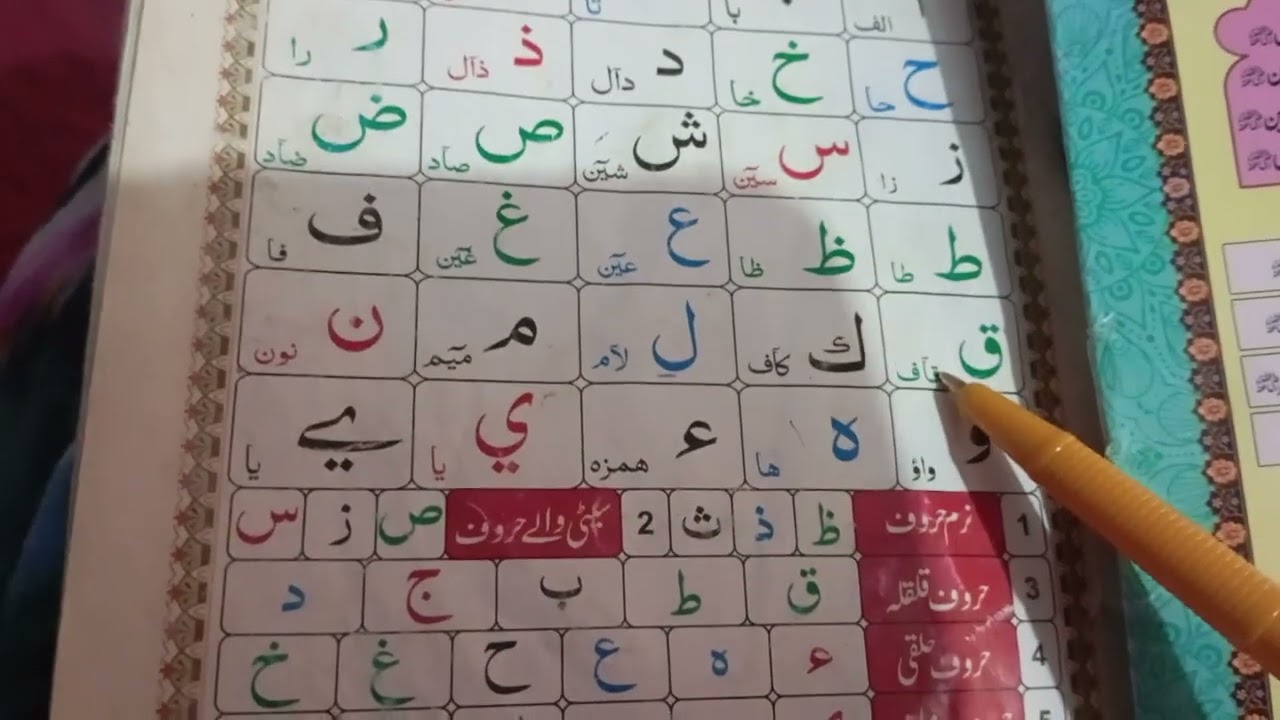 الف با تا
ح حا خ خا د دآل ذ ذآل ر را
ز زا س سیٓن ش شیٓن ص صآد ض ضآد
ط طا ظ ظا ع عیٓن غ غیٓن ف فا
ق قآف ك كآف ل لآم م میٓم ن نون
و واؤ ه ها ء همزه ي یا ے یا
1 نرم حروف ظ ذ ث 2 سیٹی والے حروف ص ز س
3 حروف قلقلہ ق ط ب ج د
4 حروف حلقی ء ه ع ح غ خ
5